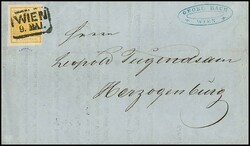 WIEN
9. MAI.
GEORG
WIEN
Herrn
Leopold Tugendsam
Herzogenburg